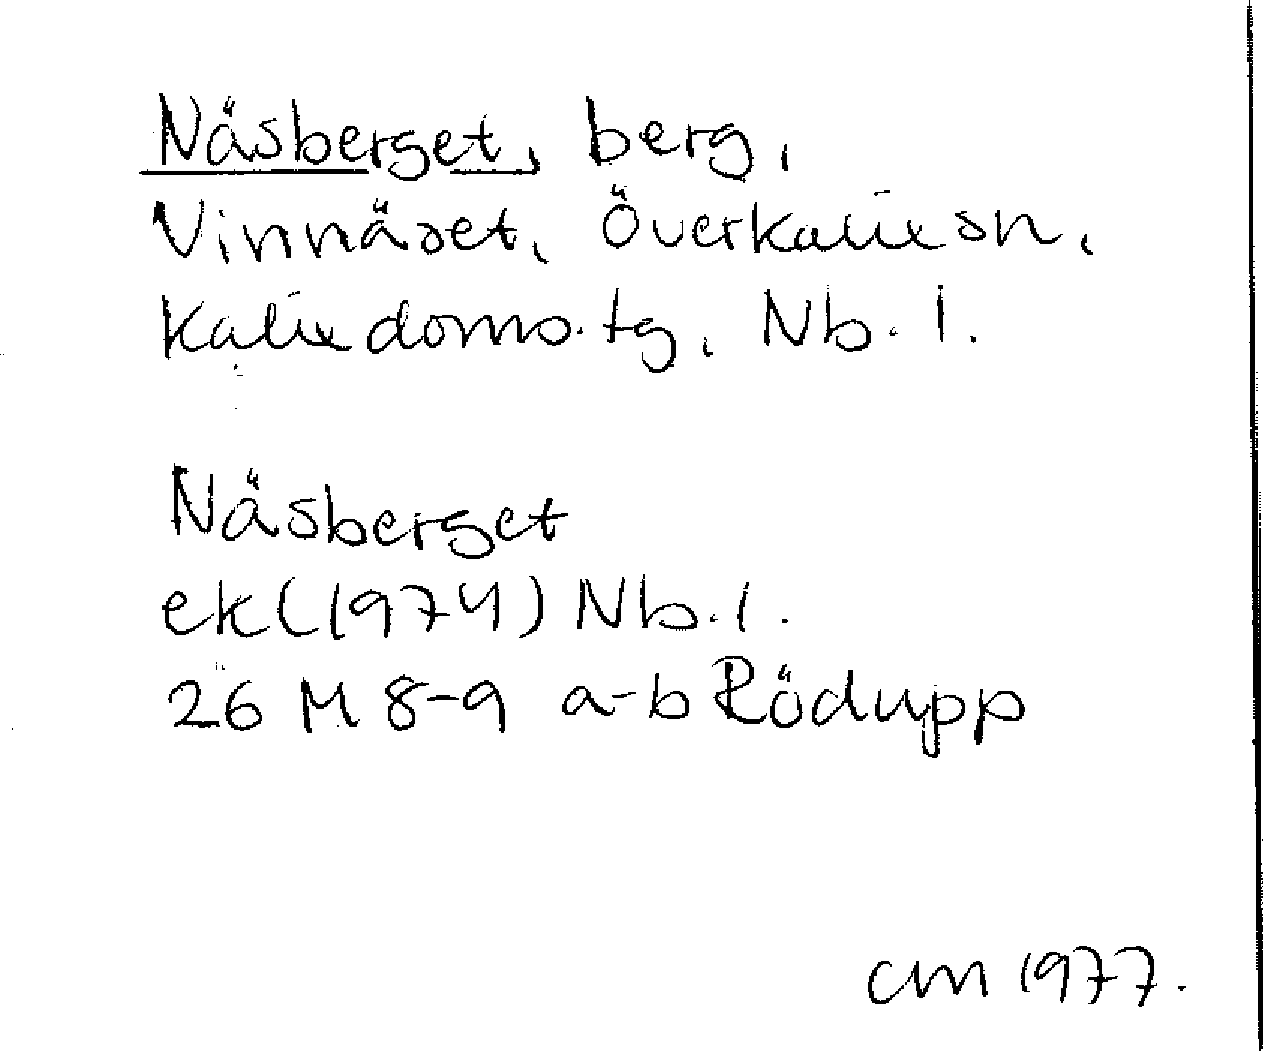 Näsberget, berg,
Vinnäset, Överkalix sn,
Kalix doms. tg, Nb. l.
Näsberget
ek (1974) Nb. l.
26 M 8-9 a-b Rödupp
cm 1977.